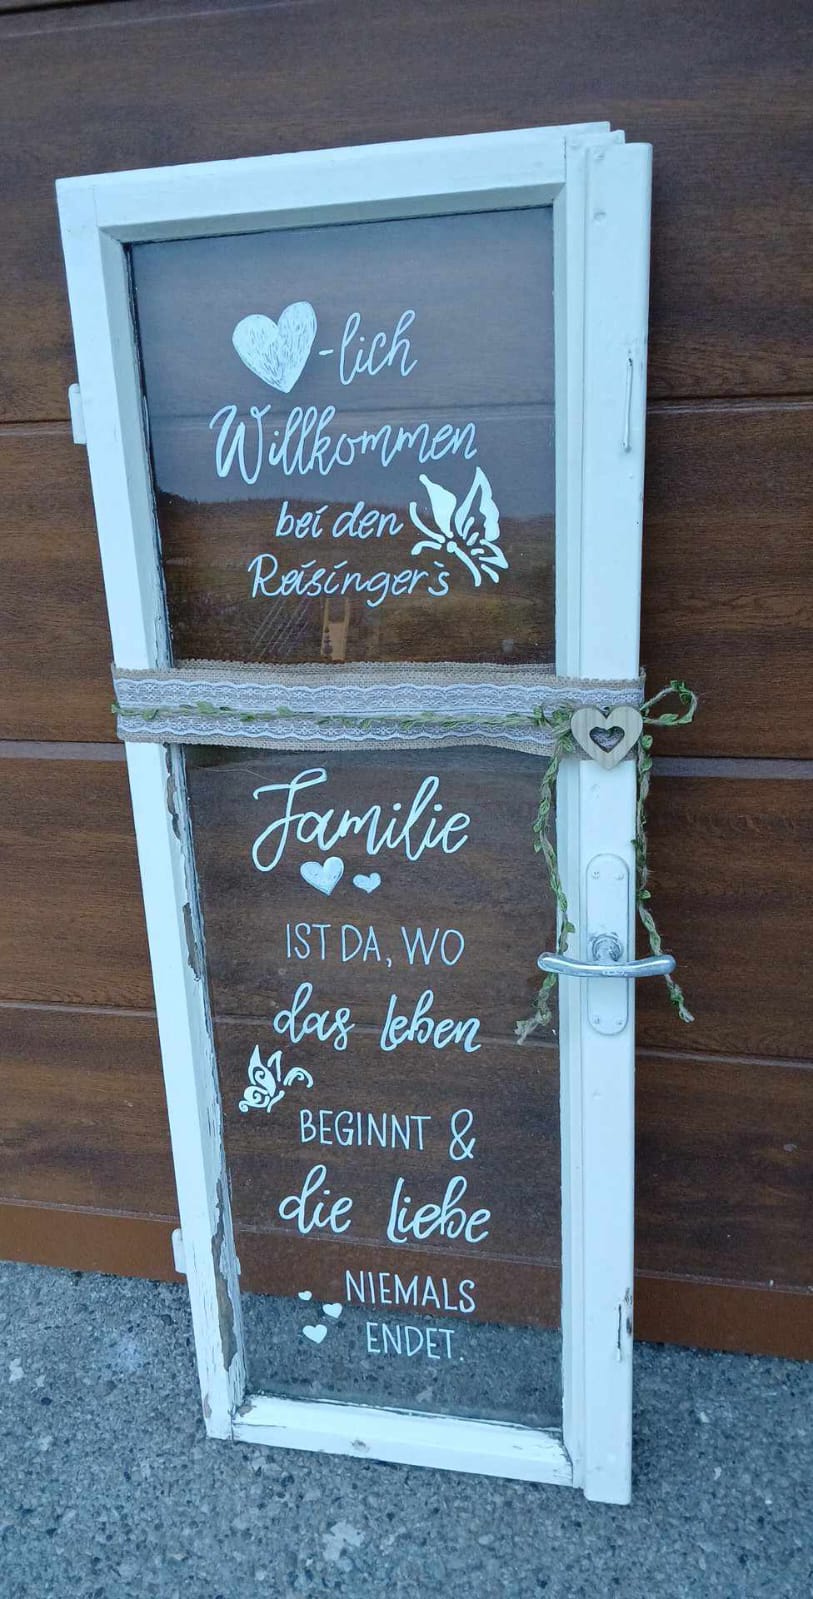 -lich
Willkommen
bei den
Reisinger's
Familie
IST DA, WO
das Leben
BEGINNT &
die Liebe
NIEMALS
ENDET.